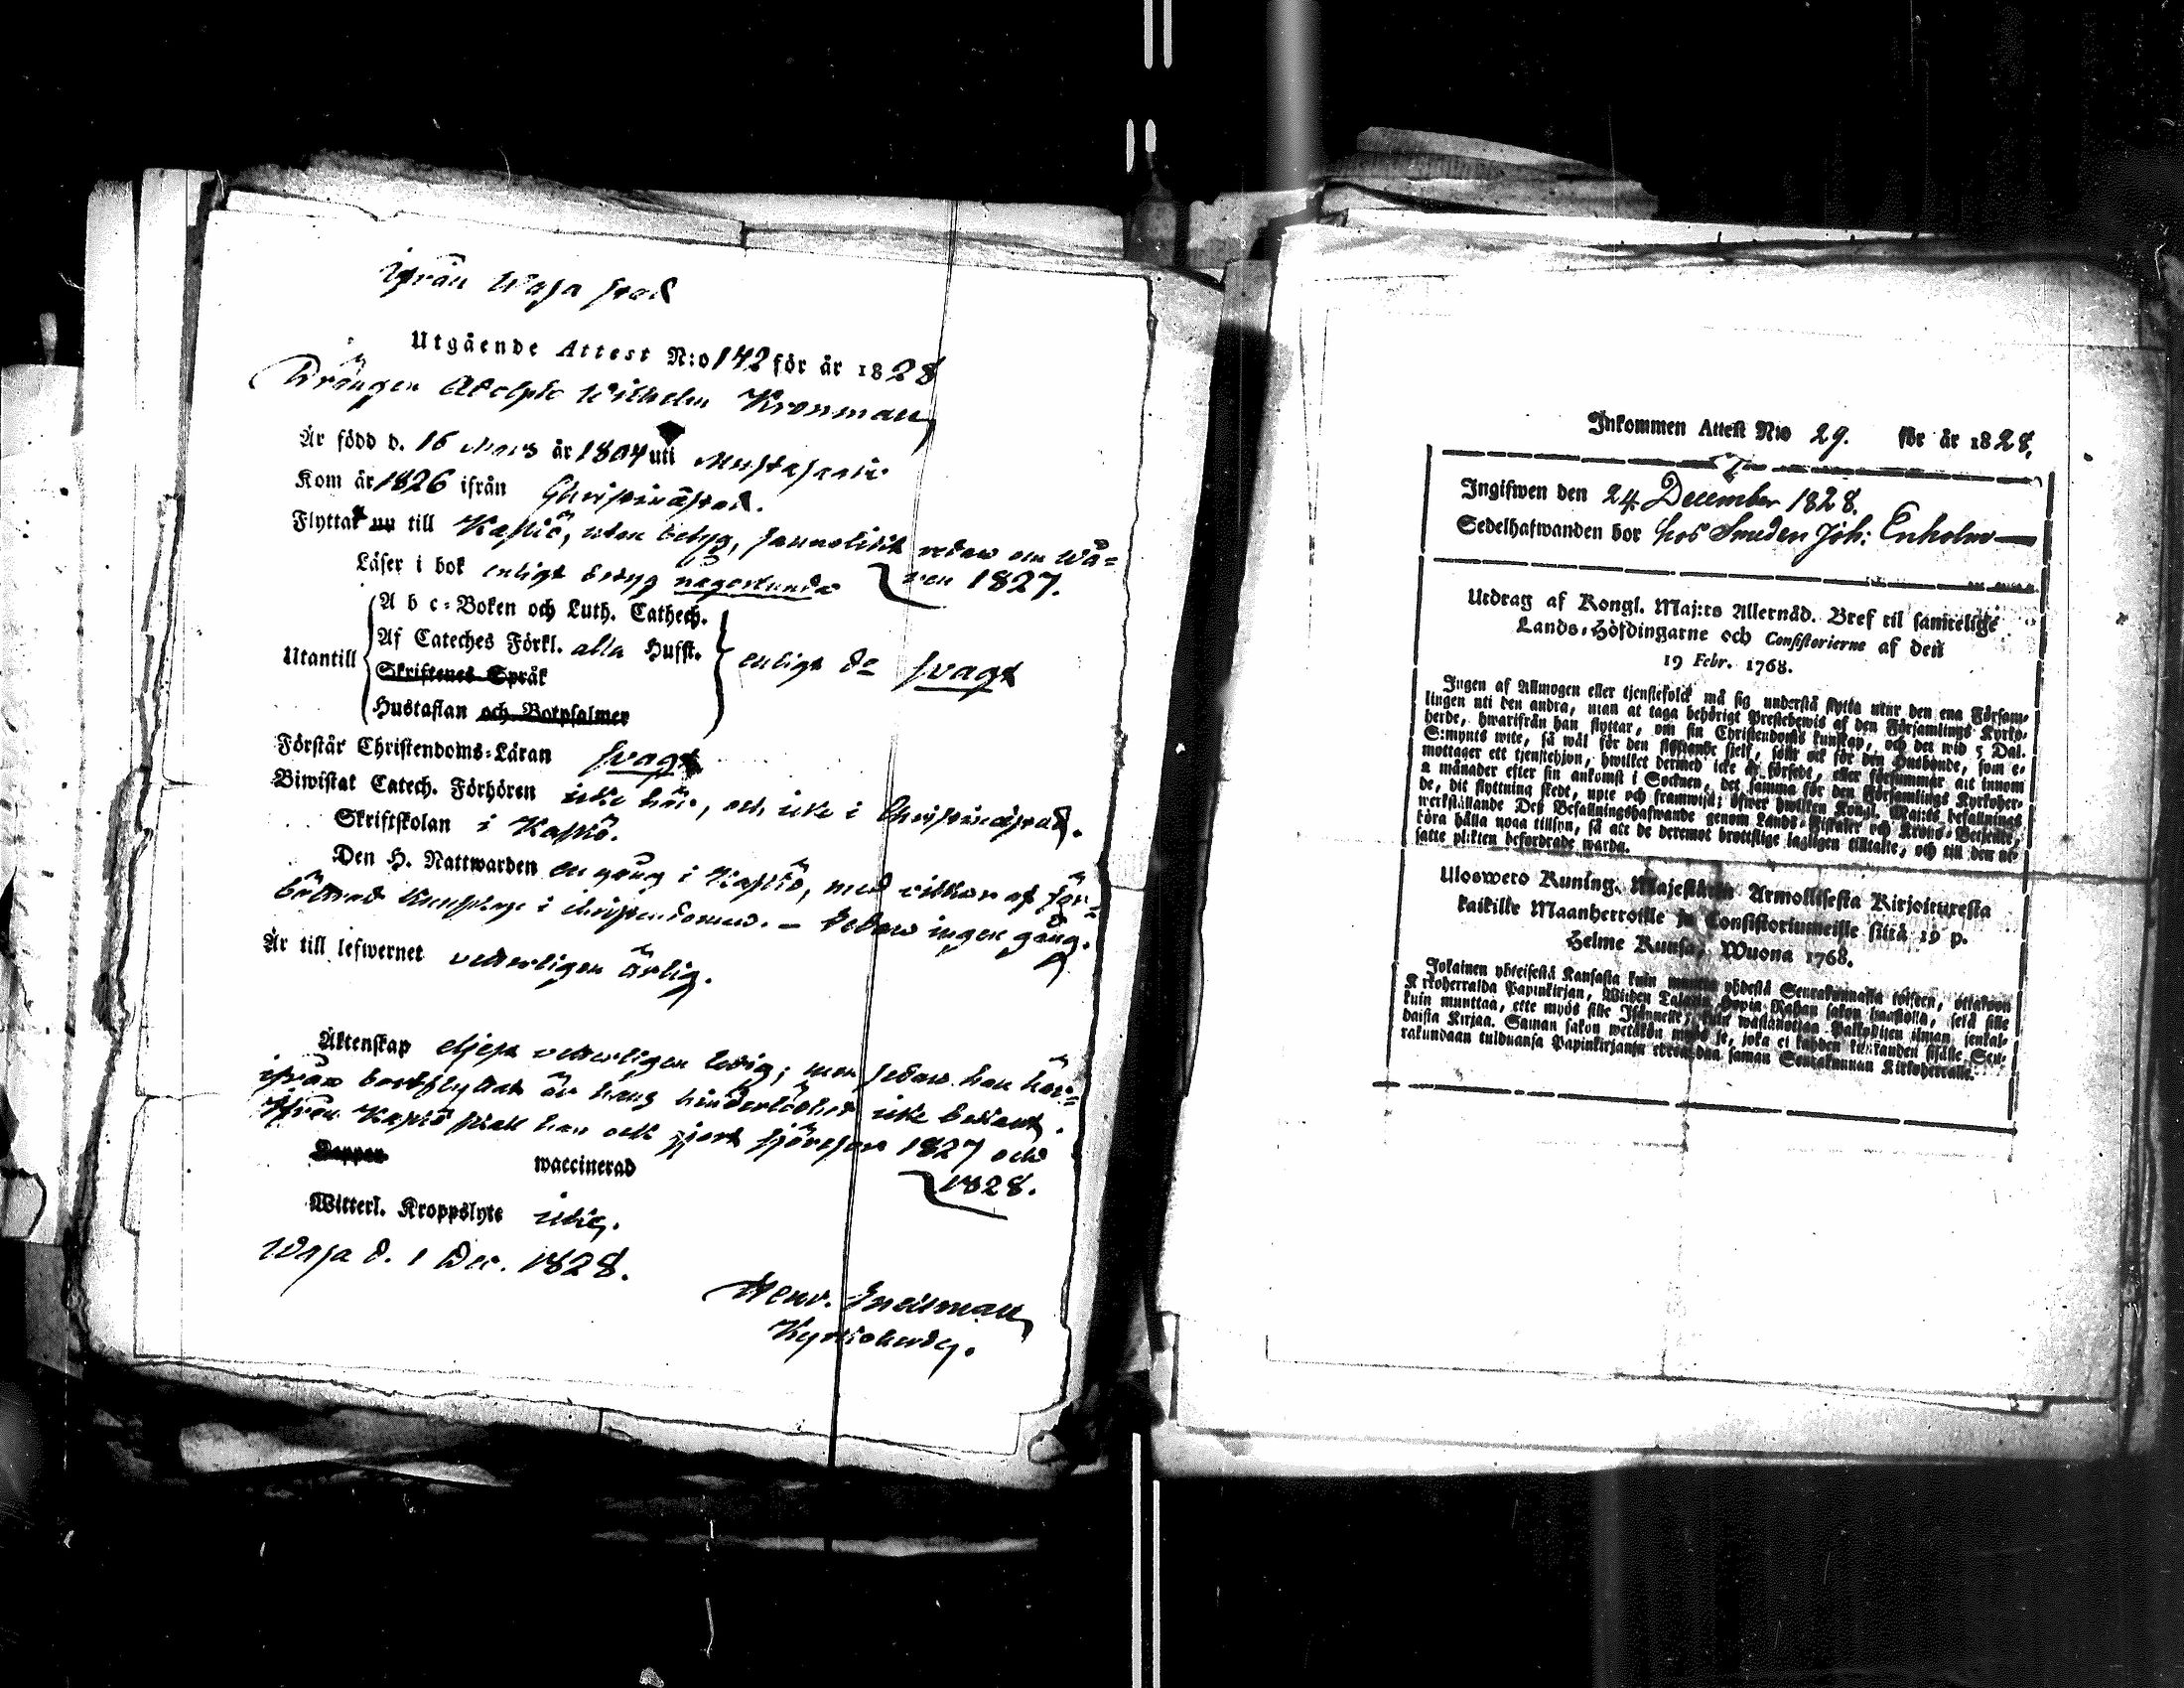 ifrån Wasa stad
Utgående Attest N:o 142 för år 1828
Drängen Adolph Wilhelm Kronman
Är född d. 16 Mars år 1804 uti Mustasaari
Kom år 1826 ifrån Christinæstad.
Flyttat nu till Kaskö, utan betyg, sannolikt redan om wå=
ren 1827.
Läser i bok enligt betyg någorlunda
A b c=Boken och Luth. Cathech.
Af Cateches Förkl. alla Hufst.
Utantill
Skriftenes Språk
Hustaflan och Botpsalmer
enligt do svagt
Förstår Christendoms=Läran svagt
Biwistat Catech. Förhören icke här, och icke i Christinæstad.
Skriftskolan i Kaskö.
Den H. Nattwarden en gång i Kaskö, med vilkor af för=
bättrad kunskap i christendomen. – Sedan ingen gång.
Är till lefwernet vetterligen ärlig.
Äktenskap vetterligen ledig; men sedan han här=
ifrån bortflyttat är hans hinderlöshet icke bekant.
Ifrån Kaskö skall han ock gjort sjöresor 1827 och
1828.
Koppor waccinerad
Witterl. Kroppslyte
Wasa d. 1 Dec. 1828.
Henr.
Kyrkoherde.
Inkommen Attest N:o 29. för år 1828.
Ingifwen den 24 December 1828.
Sedelhafwanden bor hos Smeden Joh: Enholm
Utdrag af Kongl. Maj:ts Allernåd. Bref til samtelige
Lands=Höfdingarne och Consistorierne af den
19 Febr. 1768.
Ingen af Allmogen eller tjenstefolck må sig understå flytta utur den ena Försam=
lingen uti den andra, utan at taga behörigt Prestebewis af den Församlings Kyrko=
herde, hwarifrån han flyttar, om sin Christendoms kunskap, och det wid 5 Dal.
S:mynts wite, så wäl för den flyttande sielf, som ock för den Husbonde, som e=
mottager ett tjenstehjon, hwilket dermed icke är försedt, eller försummar att innom
2 månader efter sin ankomst i Socknen, det samma för den Församlings Kyrkoher=
de, dit flyttning skedt, upte och framwisa; öfwer hwilken Kongl. Maj:ts befallnings
werkställande Deß Befallningshafwande genom Lands=Fiskaler och Krono=Betjente,
böra hålla noga tillsyn, så att de deremot brottslige lagligen tilltalte, och till den ut=
satte plikten befordrade warda.
Uloswetö Kuning. Majestätin Armollisesta Kirjoituxesta
kaikille Maanherroille ja Consistoriumeille siitä 19 p.
Helme Kuusa, Wuona 1768.
Jokainen yhteisestä Kansasta kuin muutta yhdestä Seurakunnasta toiseen, ottakoon
Kirkoherralda Papinkirjan, Wiiden Talarin Hopia Rahan sakon haastolla, sekä sille
kuin muuttaa, ette myös sille Isännelle, kuin wastanottaa Palkollisen ilman senkal=
daista Kirjaa. Saman sakon wetäkön myös se, joka ei kahden kuukauden sisälle Seu=
rakundaan tulduansa Papinkirjansa saman Seurakunnan Kirkoherralle.